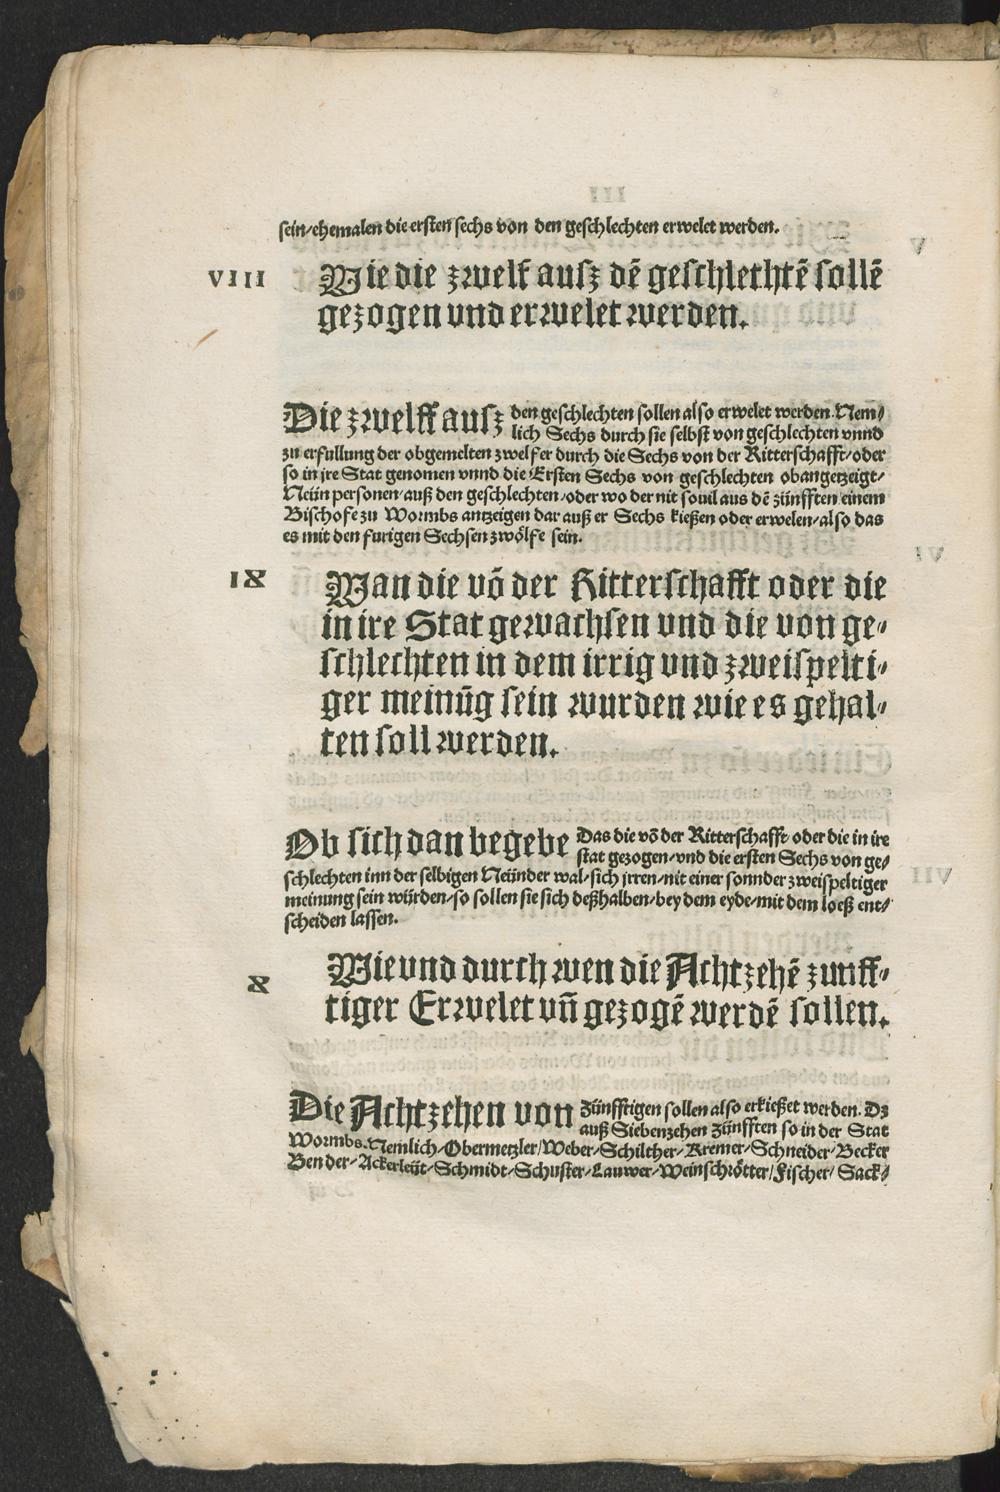 sein/ehemalen die ersten sechs von den geschlechten erwelet werden.
VIII Wie die zwelf ausz dē geschlechtē sollē
gezogen und erwelet werden.
Die zwelff ausz den geschlechten sollen also erwelet werden. Nem/
lich Sechs durch sie selbst von geschlechten vnnd
zu erfullung der obgemelten zwelfer durch die Sechs von der Ritterschafft/oder
so in jre Stat genomen vnnd die Ersten Sechs von geschlechten obangetzeigt/
Neün personen/auß den geschlechten/oder wo der nit souil aus dē zünfften einem
Bischofe zu Wormbs antzeigen dar auß er Sechs kießen oder erwelen/also das
es mit den furigen Sechsen zwölfe sein.
IX Wan die vō der Ritterschafft oder die
in ire Stat gewachsen vnd die von ge/
schlechten in dem irrig vnd zweispelti/
ger meinūg sein wurden wie es gehal/
ten soll werden.
Ob sich dan begebe Das die vō der Ritterschafft/ oder die in ire
stat gezogen/vnd die ersten Sechs von ge/
schlechten inn der selbigen Neünder wal/sich jrren/nit einer sonnder zweispeltiger
meinung sein würden/so sollen sie sich deßhalben/bey dem eyde/mit dem loeß ent/
scheiden lassen.
X Wie vnd durch wen die Achtzehē zunff/
tiger Erwelet vñ gezogē werdē sollen.
Die Achtzehen von Zünfftigen sollen also erkießet werden. Dz
auß Siebenzehen Zünfften so in der Stat
Wormbs. Nemlich/Obermetzler/Weber/Schilther/Kremer/Schneider/Becker
Bender/Ackerleüt/Schmidt/Schuster/Lauwer/Weinschrötter/Fischer/Sack/